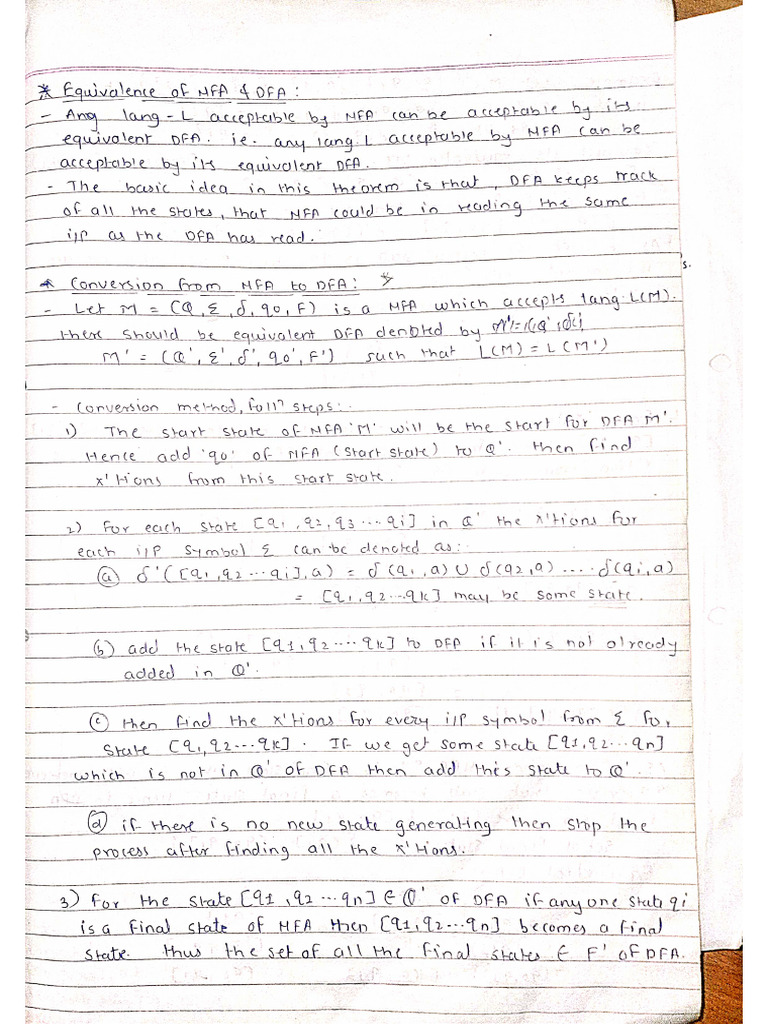 * Equivalence of NFA & DFA :
- Any lang - L acceptable by NFA can be acceptable by its
equivalent DFA. ie. any lang L acceptable by NFA can be
acceptable by its equivalent DFA.
- The basic idea in this theorem is that, DFA keeps track
of all the states, that NFA could be in reading the same
i/p as the DFA has read.
s.
* Conversion from NFA to DFA : *
- Let M = (Q, Σ, δ, q0, F) is a NFA which accepts lang. L(M).
there should be equivalent DFA denoted by
M' = (Q', Σ', δ', q0', F') such that L(M) = L(M')
- Conversion method, foll^n steps:-
1) The start state of NFA 'M' will be the start for DFA M'.
Hence add 'q0' of NFA (start state) to Q'. then find
x'tions from this start state.
2) For each state [q1, q2, q3 ... qi] in Q' the x'tions for
each i/p symbol Σ can be denoted as:-
(a) δ'([q1, q2 ... qi], a) = δ(q1, a) ∪ δ(q2, a) .... δ(qi, a)
= [q1, q2 ... qk] may be some state.
(b) add the state [q1, q2 .... qk] to DFA if it is not already
added in Q'.
(c) then find the x'tions for every i/p symbol from Σ for
state [q1, q2 ... qk]. If we get some state [q1, q2 ... qn]
which is not in Q' of DFA then add this state to Q'.
(d) if there is no new state generating then stop the
process after finding all the x'tions.
3) For the state [q1, q2 ... qn] ∈ Q' of DFA if any one state qi
is a final state of NFA then [q1, q2 ... qn] becomes a final
state. thus the set of all the final states ∈ F' of DFA.